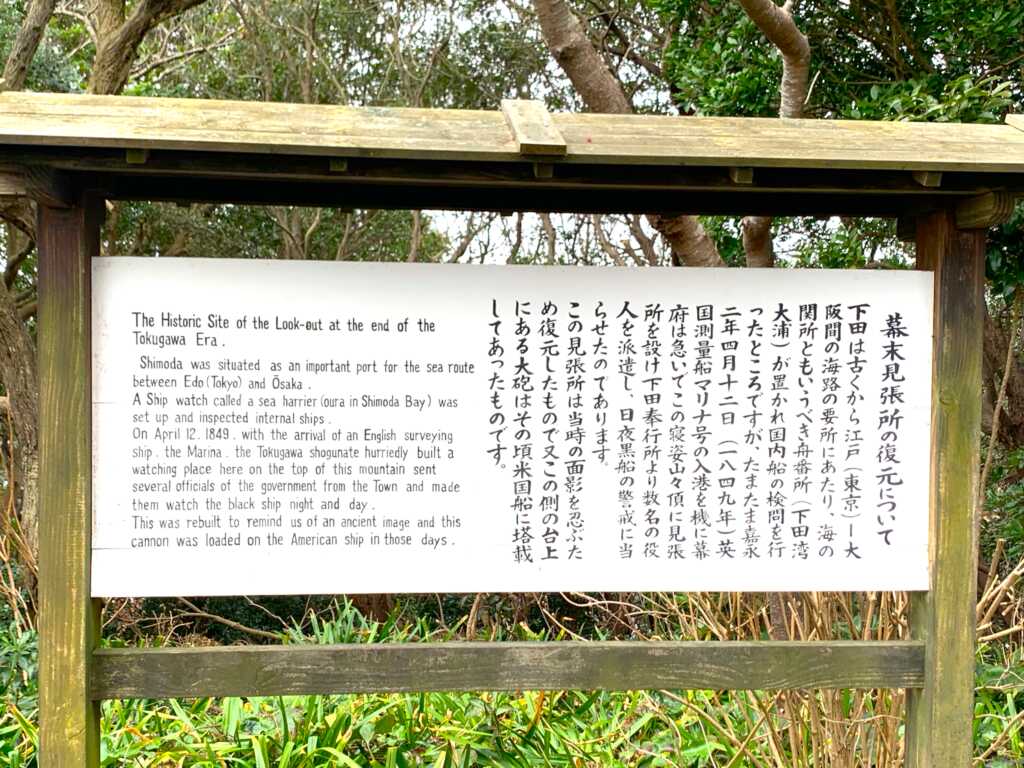 The Historic Site of the Look-out at the end of the
Tokugawa Era.
Shimoda was situated as an important port for the sea route
between Edo (Tokyo) and Ōsaka.
A Ship watch called a sea harrier (oura in Shimoda Bay) was
set up and inspected internal ships.
On April 12. 1849. with the arrival of an English surveying
ship. the Marina. the Tokugawa shogunate hurriedly built a
watching place here on the top of this mountain sent
several officials of the government from the Town and made
them watch the black ship night and day.
This was rebuilt to remind us of an ancient image and this
cannon was loaded on the American ship in those days.
幕末見張所の復元について
下田は古くから江戸(東京)ー大
阪間の海路の要所にあたり、海の
関所ともいうべき舟番所(下田湾
大浦)が置かれ国内船の検問を行
ったところですが、たまたま嘉永
二年四月十二日(一八四九年)英
国測量船マリナ号の入港を機に幕
府は急いでこの寝姿山々頂に見張
所を設け下田奉行所より数名の役
人を派遣し、日夜黒船の警戒に当
らせたのであります。
この見張所は当時の面影を忍ぶた
め復元したもので又この側の台上
にある大砲はその頃米国船に塔載
してあったものです。